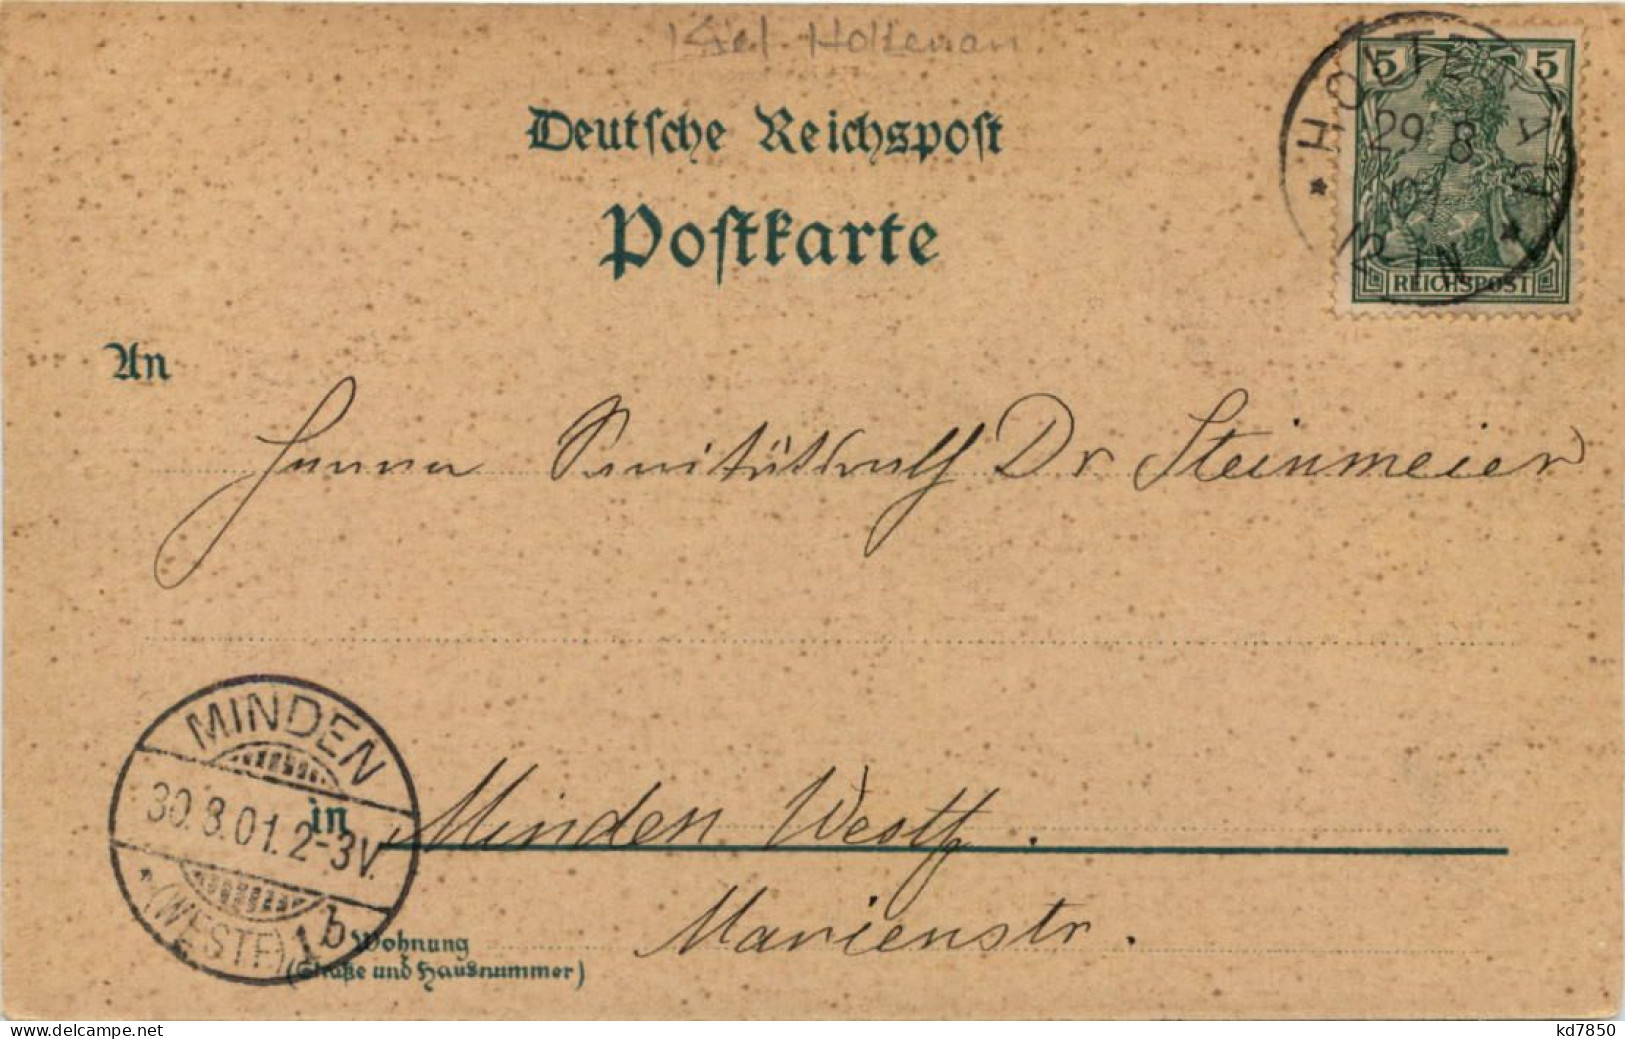 Kiel Holtenau
Deutsche Reichspost
Postkarte
5 5
REICHSPOST
HOLTENAU
29 8
01
An
Herrn Sanitätsrath Dr Steinmeier
MINDEN
30.8.01.2-3V.
* (WESTF) 1 b
in Minden Westf.
Marienstr.
Wohnung
(Straße und Hausnummer)
kd7850